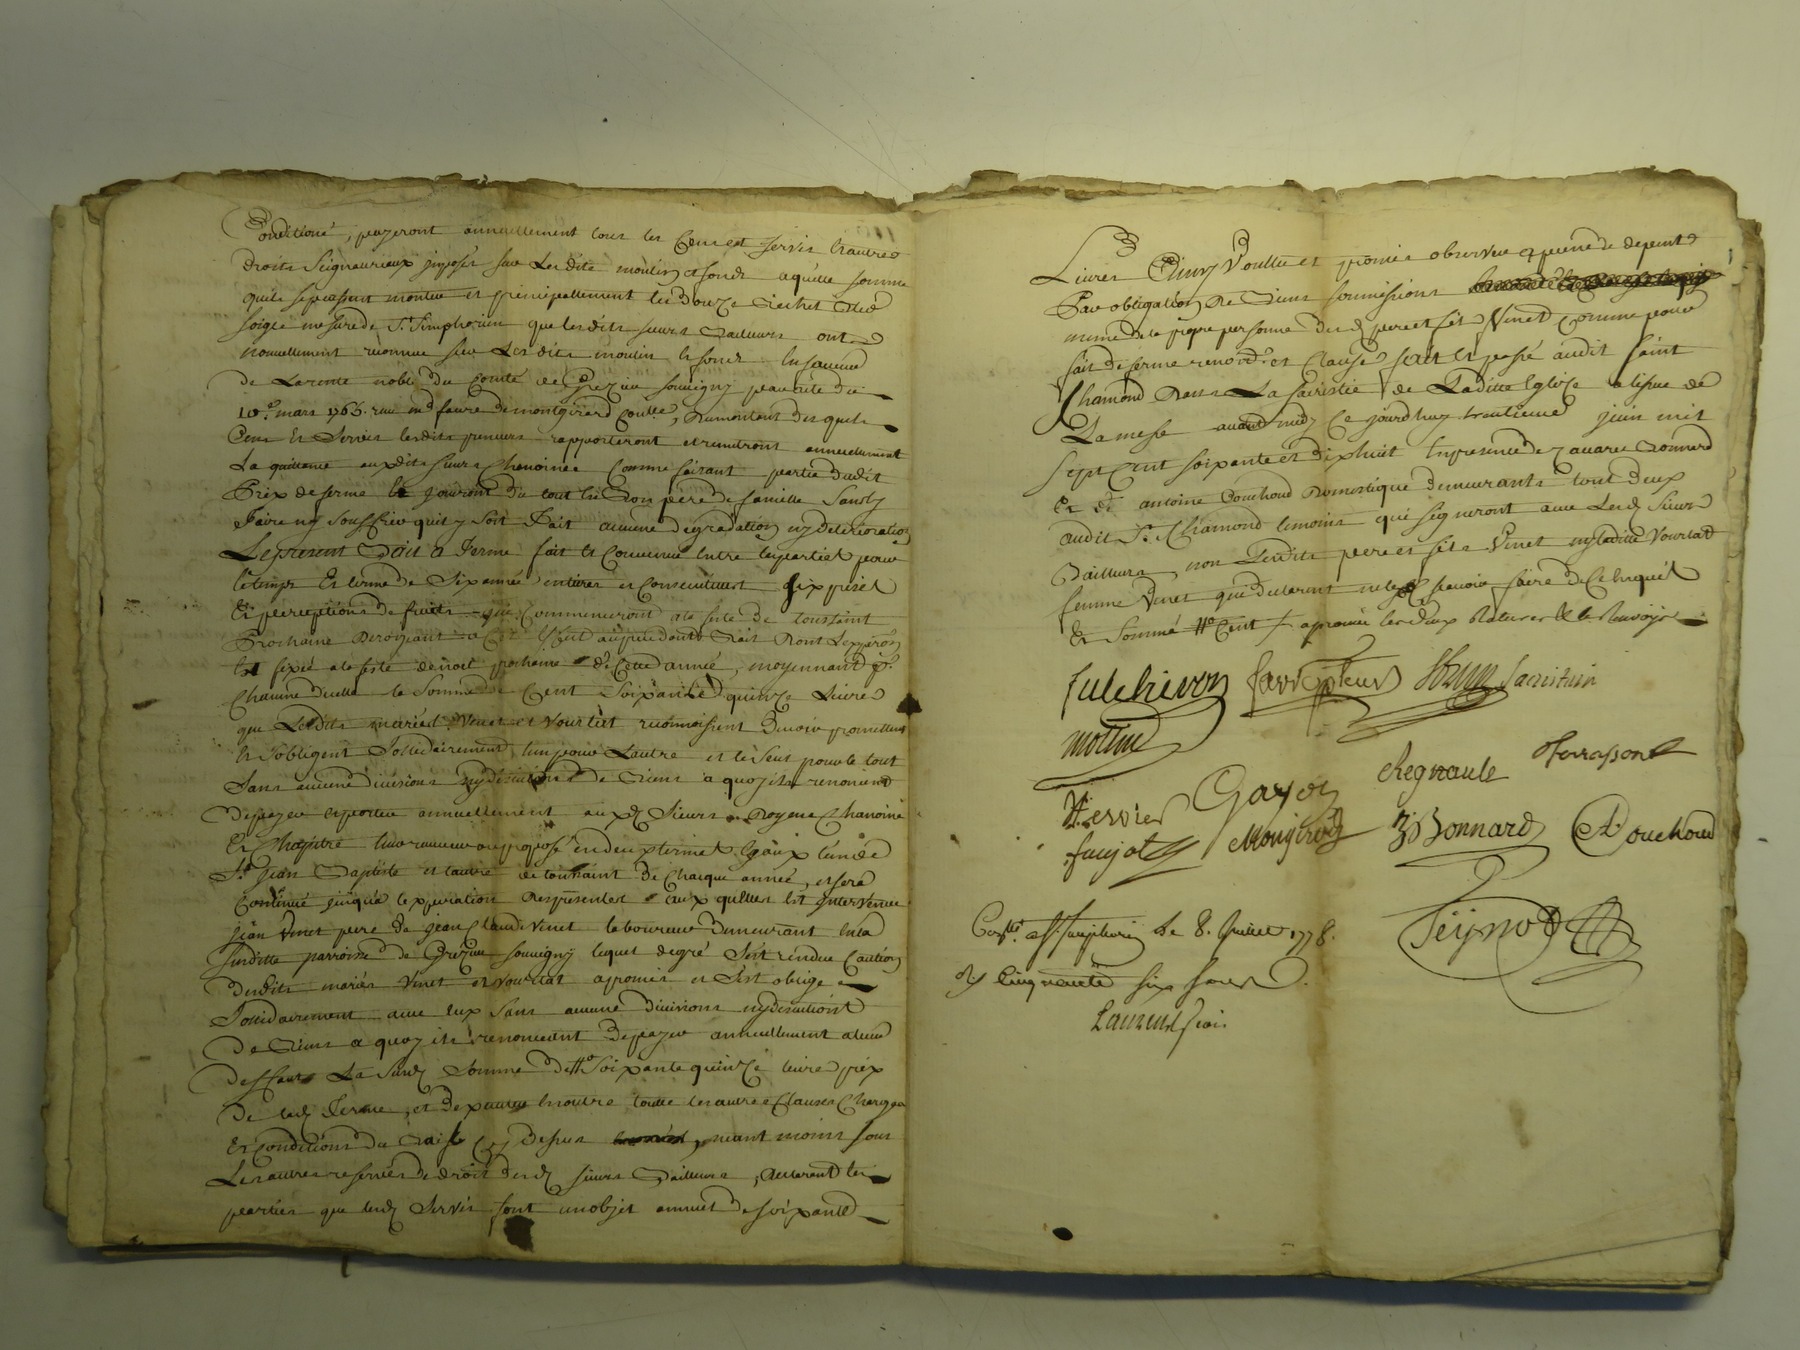 Conditioné, payeront annuellement tous les Cens et servis & autres
droits Seigneuriaux imposés sur Les dits moulin et fonds a quelle somme
quils se puissent monter et principallement les douze Bichet bled
soigle mesure de St. Simphorien que lesdits sieurs Bailleurs ont
nouvellement reconnue sur Les dits moulin et fonds En faveur
de La rente noble du Comté de Grezieu souvigny par acte du
10e. mars 1766. reçu me faure de montgirard Coulte, Du montant des quels
Cens et Servis lesdits preneurs rapporteront et rendront annuellement
La quittance auxdits sieurs Chanoines Comme faisant partie dudit
Prix de ferme & Jouiront du tout En Bon père de famille Sans y
Faire ny souffrir quil y soit Fait aucune dégradation ny déterioration
Le present Bail a ferme fait et Convenue Entre les parties pour
le temps Et terme de Six années entieres et Consecutives Six prises
Et perceptions de fruits qui Commenceront a la fete de toussaint
Prochaine Derogeant a Cet Egard au precedent Bail Dont L'expiron
Est fixée a la fete de noel prochaine de Cette année, moyennant pr.
Chacune dicelle la Somme de Cent Soixante quinze Livres
que Lesdits mariés Vinet et Vourlat reconnoissent Devoir promettent
et s'obligent Solidairement l'un pour L'autre et le Seul pour le tout
Sans aucune division ny discution de Biens a quoy ils renoncent
De payer et porter annuellement aux d. Sieurs Doyens Chanoine
Et Chapitre
St. Jean Baptiste et l'autre de toussaint de Chaque année, et sera
Continué jusqu'a l'expiration Des presentes aux quelles Est Intervenue
jean Vinet pere de jean Claude Vinet laboureur Demeurant En la
Susditte parroisse de Grezieu souvigny lequel de gré S'est rendue Caution
Desdits mariés Vinet et Vourlat a promis et s'est obligé
Solidairement avec Eux Sans aucune division ny discution
De Biens a quoy ils renoncent De payer annuellement a leur
deffaut La Susd. Somme de Cent Soixante quinze livres prix
De lad. Ferme, et D'executer En outre toutte les autres Clauses Charges
Et Conditions du Bail Cy Dessus neant moins sous
Les autres reserves de droit desd. sieurs Bailleurs, Declarant les
parties que lesd. Servis font un objet annuel de soixante
Livres Ainsy Voullu et promis observer a peine de depents
Par obligation de Biens soumissions
même de la propre personne desd. pere et fils Vinet Comme pour
fait de ferme renond. et Clauses fait et passé audit Saint
Chamond Dans La Sacristie de Laditte Eglise a l'issue de
La messe avant midy Ce jourd'huy trentieme juin mil
Sept Cent soixante et dix huit En presence de Zacarie Bonnard
Et de antoine Couchoud Domestique demeurants tout deux
audit St. Chamond temoins qui signeront avec Lesd. Sieurs
Bailleurs, non Lesdits pere et fils Vinet ny laditte Vourlat
femme Vinet qui declarent ne le sçavoir faire de Ce Enquis
Et Sommé Cent approuvé les deux Ratures & le Renvoy
fulchiron ferriol Brun Sacristain
mottin
Regnault Terrasson
Hervier Gayot
faujat Mongirod Z Bonnard A Couchoud
Contlé. a St. Simphorien le 8. Juillet 1778.
R. Cinquante six sous
Laurenson
Peijnot